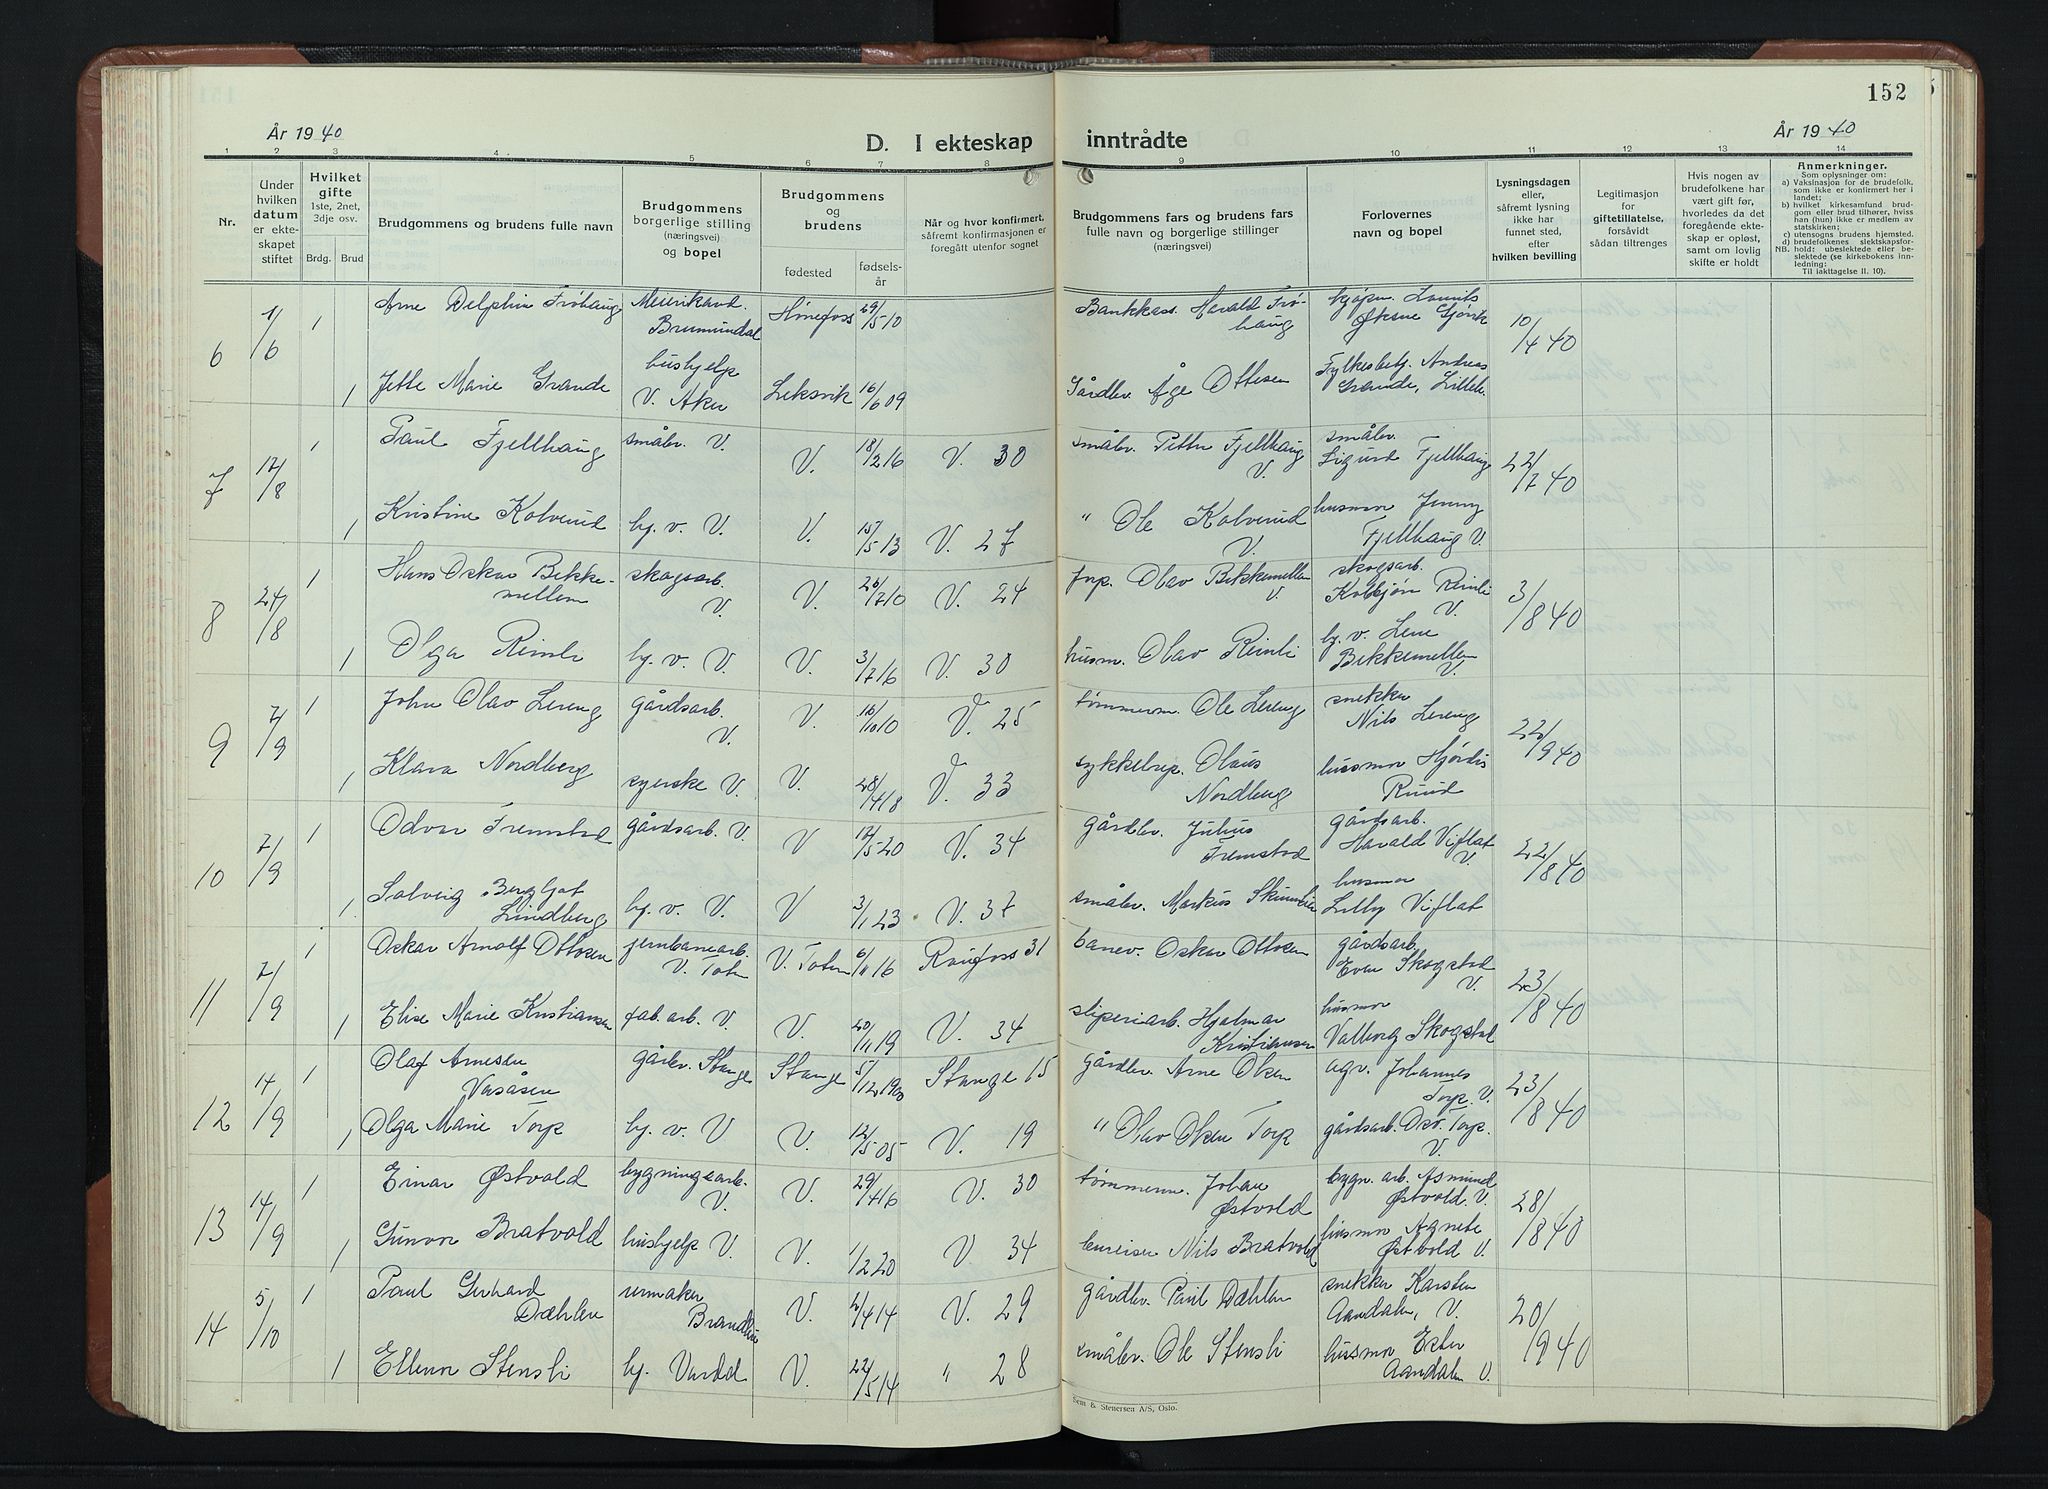 152
År 1940
D. I ekteskap inntrådte
År 1940
1 2 3 4 5 6 7 8 9 10 11 12 13 14
Nr.
Under hvilken datum er ekteskapet stiftet
Hvilket gifte 1ste, 2net, 3dje osv.
Brdg. Brud
Brudgommens og brudens fulle navn
Brudgommens borgerlige stilling (næringsvei) og bopel
Brudgommens og brudens
fødested
fødselsår
Når og hvor konfirmert, såfremt konfirmasjonen er foregått utenfor sognet
Brudgommens fars og brudens fars fulle navn og borgerlige stillinger (næringsvei)
Forlovernes navn og bopel
Lysningsdagen eller, såfremt lysning ikke har funnet sted, efter hvilken bevilling
Legitimasjon for giftetillatelse, forsåvidt sådan tiltrenges
Hvis nogen av brudefolkene har vært gift før, hvorledes da det foregående ekteskap er opløst, samt om lovlig skifte er holdt
Anmerkninger.
Som oplysninger om:
a) Vaksinasjon for de brudefolk, som ikke er konfirmert her i landet;
b) hvilket kirkesamfund brudgom eller brud tilhører, hviss han (hun) ikke er medlem av statskirken;
c) utensogns brudens hjemsted.
d) brudefolkenes slektskapsforhold: ubeslektede eller beslektede (se kirkebokens innledning:
Til iakttagelse II. 10).
6 1/6 1 Arne Delphin Frøhaug Meierikand. Brumundal Hønefoss 29/5 10 Bankkass. Harald Frøhaug kjøpm. Laurits Øksne Gjøvik 10/4 40
1 Jette Marie Grande hushjelp V. Aker Leksvik 16/6 09 Gårdbr. Åge Ottesen Fylkesbetj. Andreas Grande, Lilleh.
7 17/8 1 Paul Fjellhaug småbr. V. V. 18/2 16 V. 30 småbr. Petter Fjellhaug V. småbr. Sigurd Fjellhaug 22/7 40
1 Kristine Kolverud hj. v. V. V. 15/5 13 V. 27 " Ole Kolverud V. husmor Jenny Fjellhaug V.
8 24/8 1 Hans Oskar Bekkemellem skogsarb. V. V. 26/7 10 V. 24 forp. Olav Bekkemellem V. skogsarb. Kolbjørn Reinli V. 3/8 40
1 Olga Reinli hj. v. V. V. 3/7 16 V. 30 husm. Olav Reinli hj. v. Lene Bekkemellem V.
9 7/9 1 John Olav Lereng gårdsarb. V. V. 16/10 10 V. 25 tømmerm. Ole Lereng snekker Nils Lereng 22/9 40
1 Klara Nordberg syerske V. V. 28/4 18 V. 33 sykkelrep. Olaus Nordberg husmor Hjørdis Ruud
10 7/9 1 Odvar Fremstad gårdsarb. V. V 17/5 20 V. 34 gårdbr. Julius Fremstad gårdsarb. Harald Viflat V. 22/8 40
1 Solveig Bergljot Lindberg hj. v. V. V 3/1 23 V. 37 småbr. Markus husmor Lilly Viflat
11 7/9 1 Oskar Arnolf Ottosen jernbanearb. V. Toten V. Toten 6/11 16 Raufoss 31 banev. Oskar Ottosen gårdsarb. Even Skogstad V. 23/8 40
1 Elise Marie Kristiansen fab. arb. V. V. 20/11 19 V. 34 sliperiarb. Hjalmar Kristiansen husmor Valborg Skogstad
12 14/9 1 Olaf Arnesen Vasåsen gårbr. Stange Stange 5/12 1900 Stange 15 gårdbr. Arne Olsen agr. Johannes Torp. V. 23/8 40
1 Olga Marie Torp hj. v. V V. 12/5 05 V. 19 " Olav Olsen Torp gårdsarb. Osv. Torp. V.
13 14/9 1 Einar Østvold bygningsarb. V. V. 29/4 16 V. 30 tømmerm. Johan Østvold bygn. arb. Asmund Østvold. V. 28/8 40
1 Gunvor Bratvold hushjelp V. V. 1/2 20 V. 34 bureiser Nils Bratvold husmor Agnete Østvold V.
14 5/10 1 Paul Gerhard Dæhlen urmaker Brandbu V. 2/4 14 V. 29 gårdbr. Paul Dæhlen snekker Karsten Aandalen, V. 20/9 40
1 Ellenor Stensli hj. Vardal V. 22/5 14 " 28 småbr. Ole Stensli husmor Ester Aandalen V.
Sem & Stenersen A/S, Oslo.